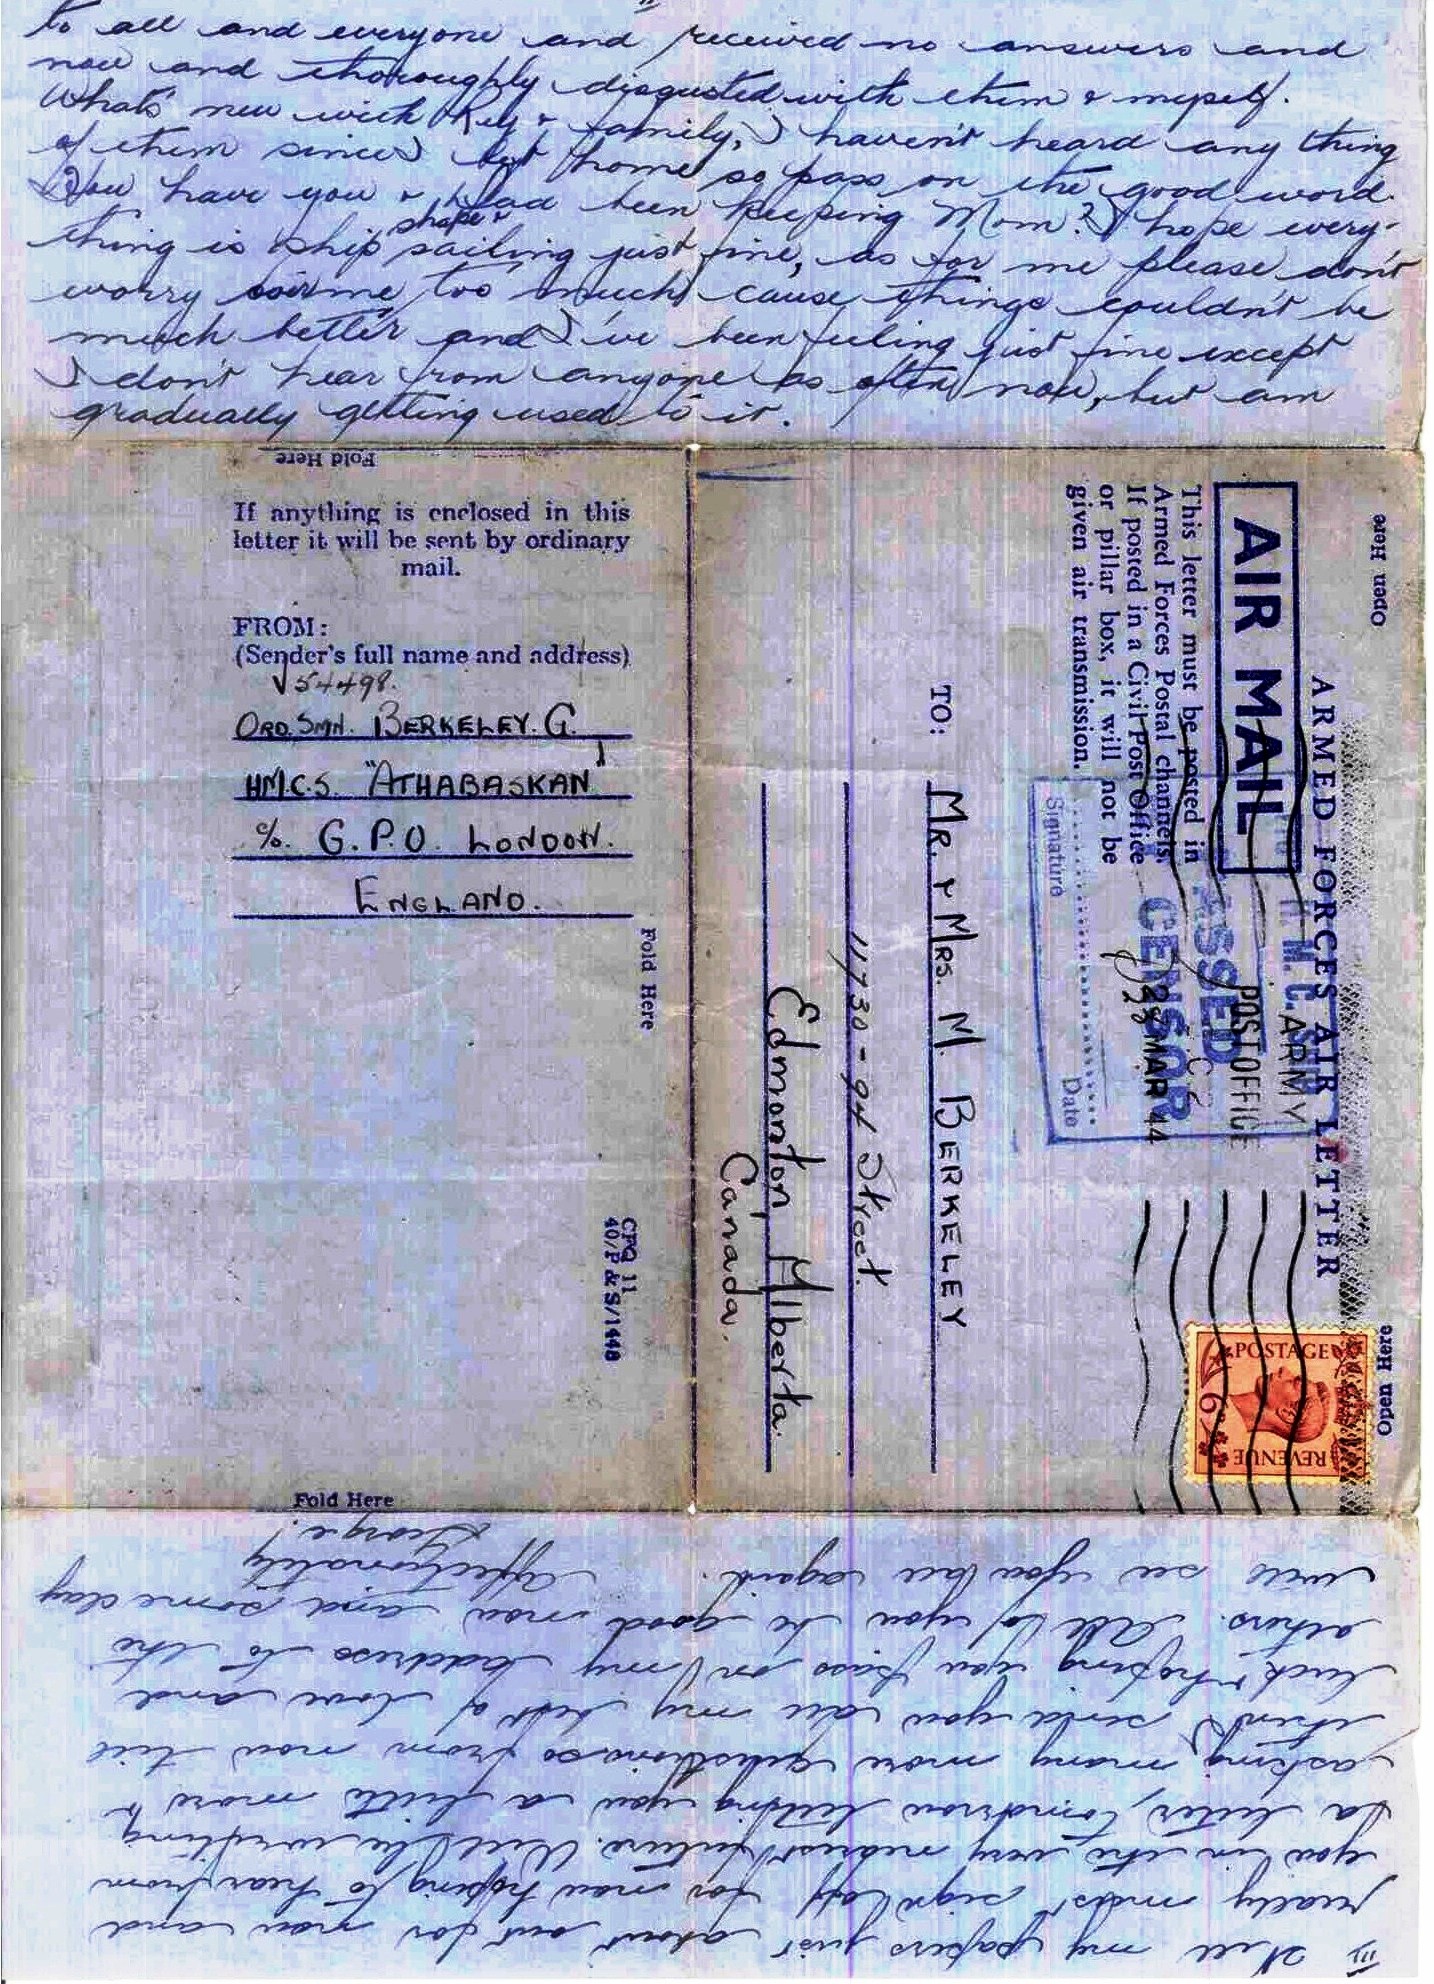 II
to all and everyone and received no answers and
now and thoroughly disgusted with them & myself.
What's new with Reg & family, I haven't heard any thing
of them since I left home so pass on the good word.
How have you & Dad been keeping Mom? I hope every-
thing is ship shape & sailing just fine, as for me please don't
worry me too much cause things couldn't be
much better and I've been feeling just fine except
I don't hear from anyone as often now, but am
gradually getting used to it.
Fold Here
If anything is enclosed in this
letter it will be sent by ordinary
mail.
FROM:
(Sender's full name and address)
V54498.
ORD. SMN. BERKELEY. G.
H.M.C.S. "ATHABASKAN"
c/o. G.P.O. LONDON.
ENGLAND.
Fold Here
CPQ 11
40/P & S/1448
Fold Here
Open Here
ARMED FORCES AIR LETTER
Open Here
AIR MAIL
This letter must be posted in
Armed Forces Postal channels.
If posted in a Civil Post Office
or pillar box, it will not be
given air transmission.
H.M.C. SHIP
PASSED
CENSOR
Signature
Date
ARMY
POST OFFICE
28 MAR 44
POSTAGE
6D
REVENUE
TO:
MR. & MRS. M. BERKELEY
11730 - 94 Street.
Edmonton, Alberta.
Canada.
III
Well my papers just about out for now and
really must sign off for now hoping to hear from
you in the very nearest future. Will be writing
a letter, tomorrow telling you a little more &
asking many more questions so from now till
then, I send you all my best of love and
luck & hoping you pass on my address to the
others. All of you be good now and some day
will see you all again.
Affectionately
George!